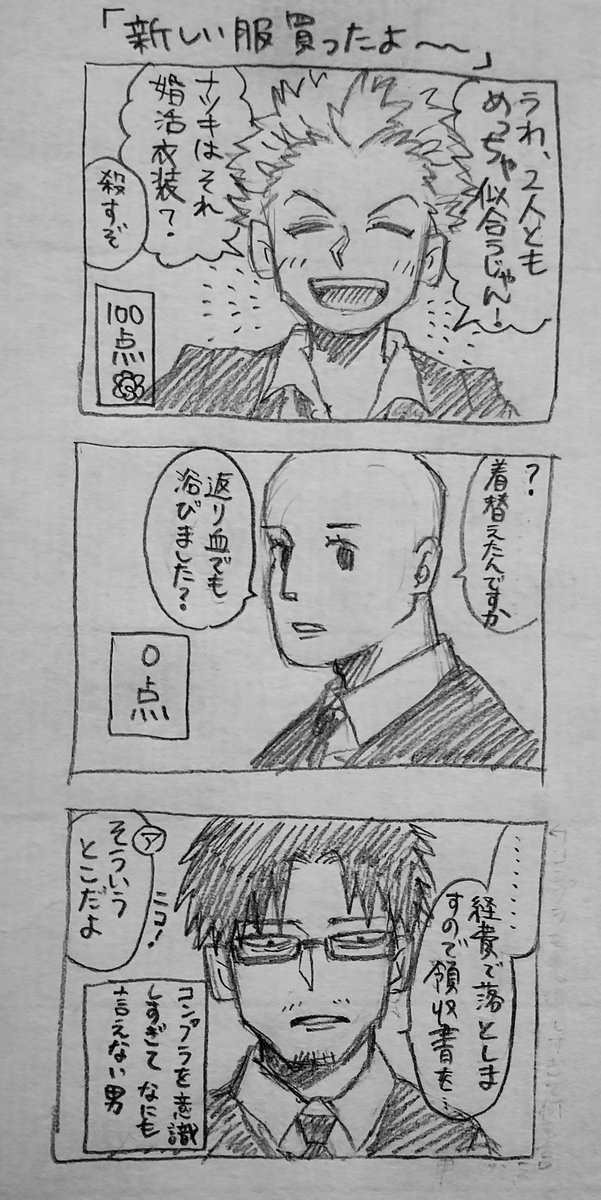 「新しい服買ったよ〜〜」
うわ、2人とも
めっちゃ似合うじゃん！
ナツキはそれ
婚活衣装？
殺すぞ
100
点
？
着替えたんですか
返り血でも
浴びました？
0
点
………
経費で落としま
すので領収書を…
ニコ！
ア
そういう
とこだよ
コンプラを意識
しすぎてなにも
言えない男